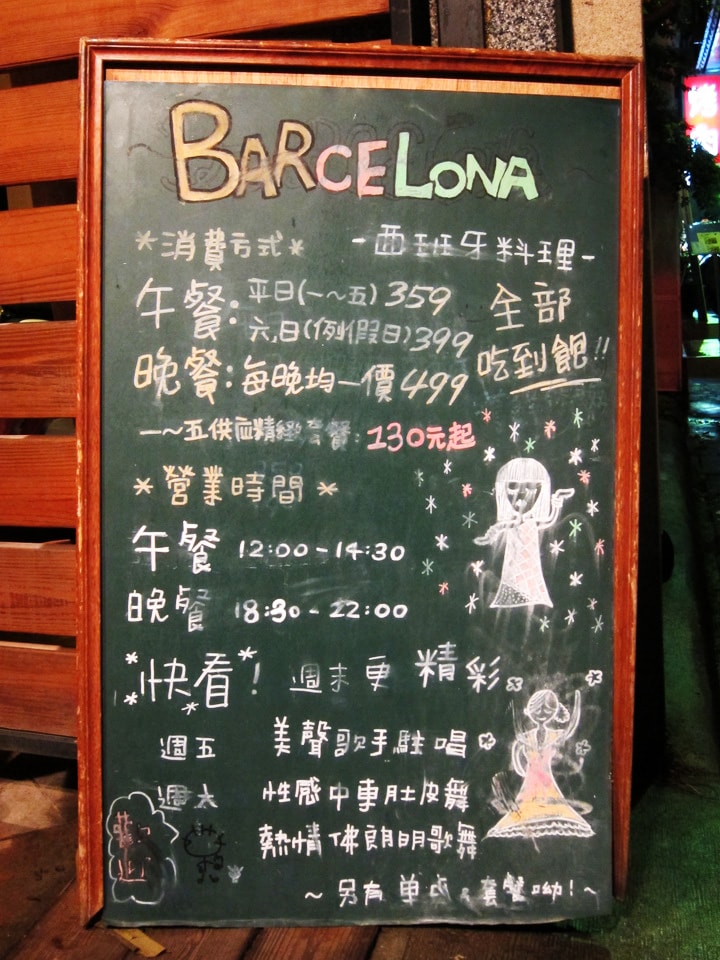 BARCELONA
*消費方式* -西班牙料理-
午餐: 平日(一~五)359
六.日(例假日)399
全部
吃到飽!!
晚餐: 每晚均一價499
一~五供應精緻套餐: 130元起
*營業時間*
午餐 12:00-14:30
晚餐 18:30-22:00
快看! 週末更精彩
週五 美聲歌手駐唱
週六 性感中東肚皮舞
熱情佛朗明歌舞
~另有單點&套餐呦!~